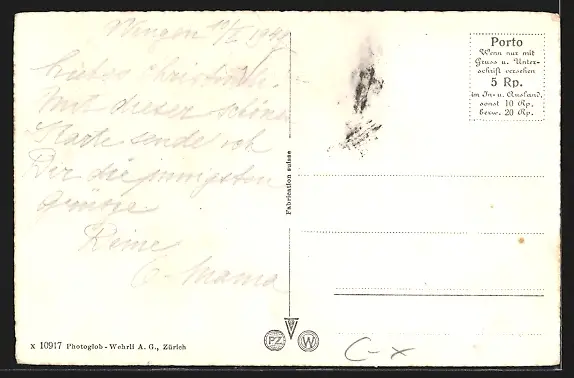 Wengen 19/I 1941
Liebes Christineli.
Mit dieser schönen
Karte sende ich
Dir die innigsten
Grüsse
Deine
G-mama
Fabrication suisse
Porto
Wenn nur mit
Gruss u. Unter-
schrift versehen
5 Rp.
im In- u. Ausland,
sonst 10 Rp.
bezw. 20 Rp.
X 10917 Photoglob-Wehrli A. G., Zürich
PZ W
C-x